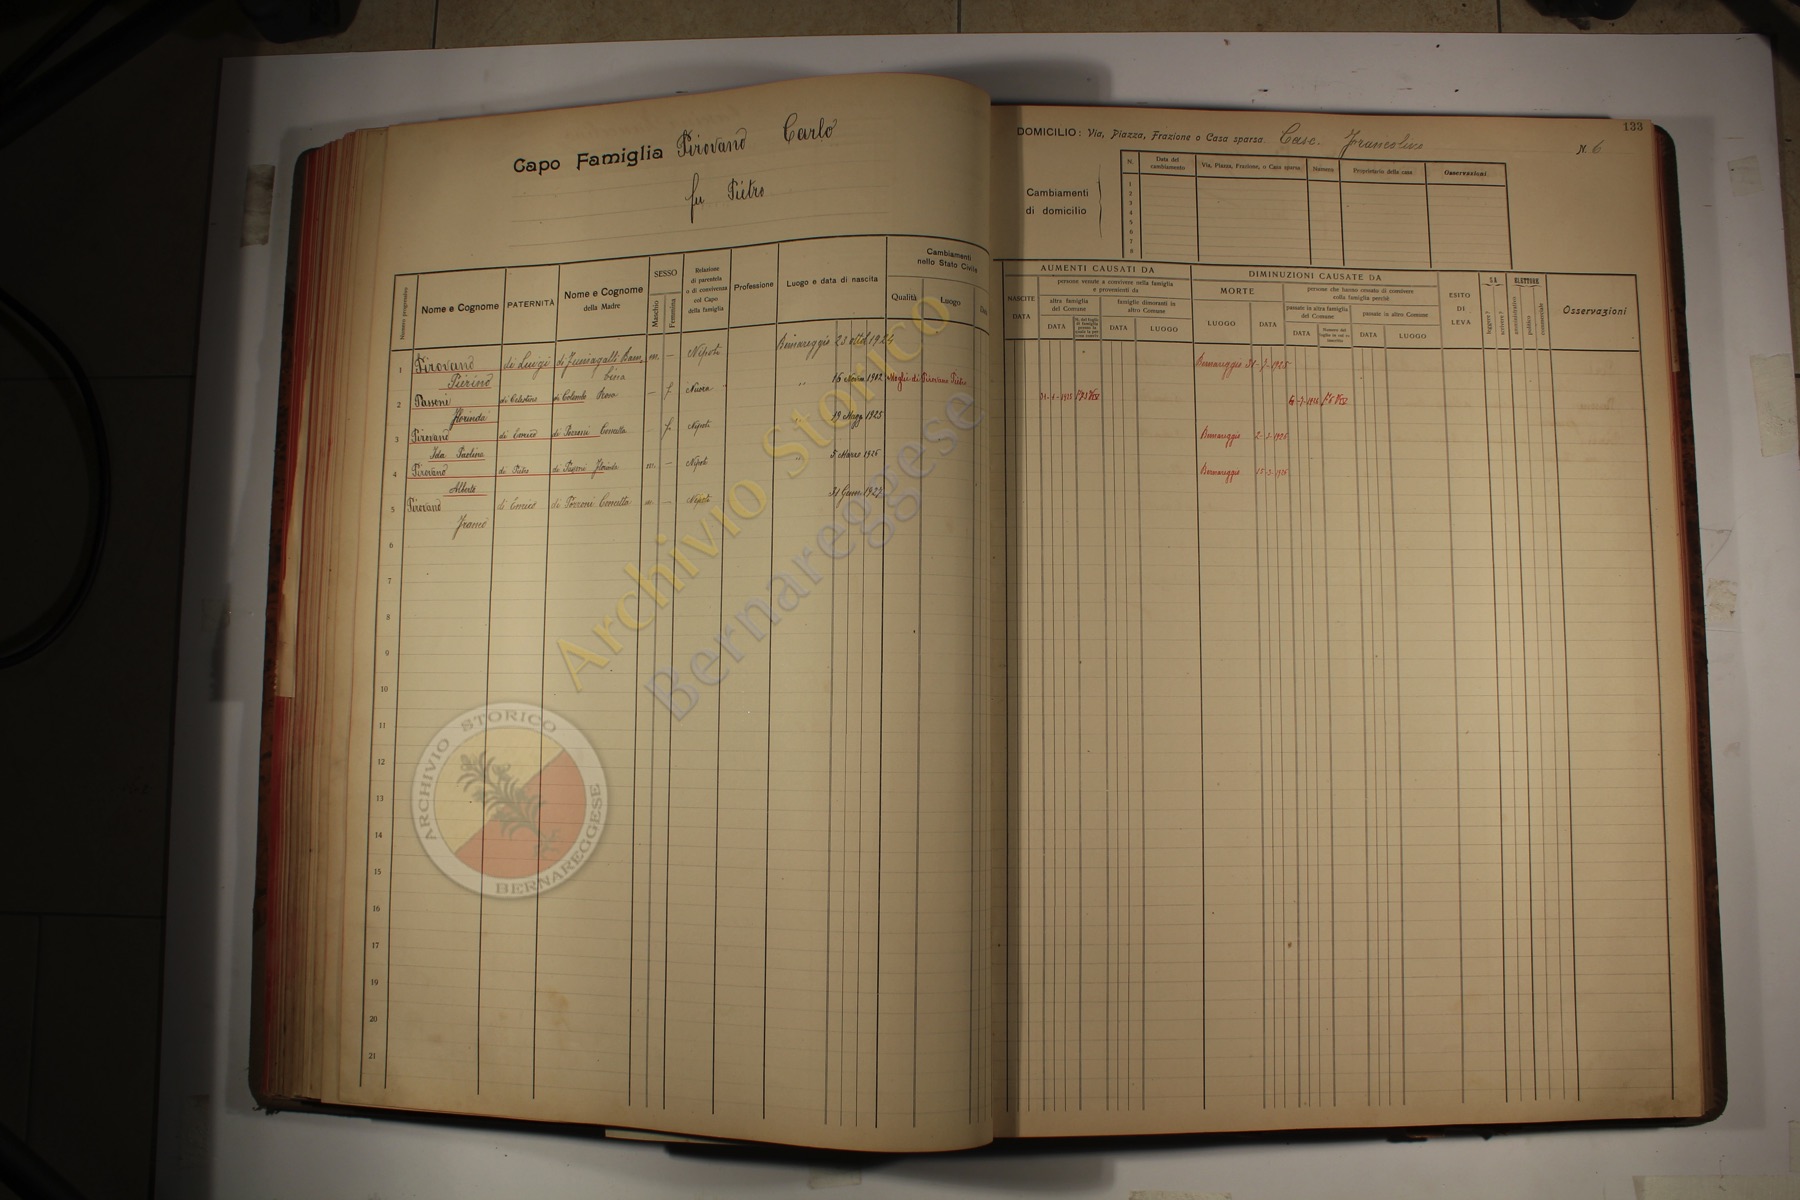 Capo Famiglia Pirovano Carlo
fu Pietro
Numero progressivo
Nome e Cognome
PATERNITÀ
Nome e Cognome
della Madre
SESSO
Maschio
Femmina
Relazione
di parentela
o di convivenza
col Capo
della famiglia
Professione
Luogo e data di nascita
Cambiamenti
nello Stato Civile
Qualità
Luogo
1 Pirovano di Luigi di Fumagalli Bam- m. — Nipoti Bernareggio 23 ottob 1924
Pierino bina
2 Passoni di Celestino di Colombo Rosa — f Nuora " 16 Novem 1902 Moglie di Pirovano Pietro
Florinda
3 Pirovano di Enrico di Pozzoni Cometta — f. Nipoti 19 Magg 1925
Ida Paolina
4 Pirovano di Pietro di Passoni Florinda m. — Nipoti " 5 Marzo 1926
Alberto
5 Pirovano di Enrico di Pozzoni Cometta m. — Nipoti 31 Genn 1927
Franco
6
7
8
9
10
11
12
13
14
15
16
17
18
19
20
21
133
DOMICILIO: Via, Piazza, Frazione o Casa sparsa Casc. Francolino N. 6
Cambiamenti
di domicilio
N.
Data del
cambiamento
Via, Piazza, Frazione, o Casa sparsa
Numero
Proprietario della casa
Osservazioni
1
2
3
4
5
6
7
8
AUMENTI CAUSATI DA
NASCITE
DATA
persone venute a convivere nella famiglia
e provenienti da
altra famiglia
del Comune
DATA
famiglie dimoranti in
altro Comune
DATA
LUOGO
DIMINUZIONI CAUSATE DA
MORTE
LUOGO
DATA
persone che hanno cessato di convivere
colla famiglia perchè
passate in altra famiglia
del Comune
DATA
passate in altro Comune
DATA
LUOGO
ESITO
DI
LEVA
SA
leggere?
scrivere?
ELETTORE
amministrativo
politico
commerciale
Osservazioni
Bernareggio 31-7-1925
Bernareggio 2-
Bernareggio
Archivio Storico
Bernareggese
ARCHIVIO STORICO
BERNAREGGESE